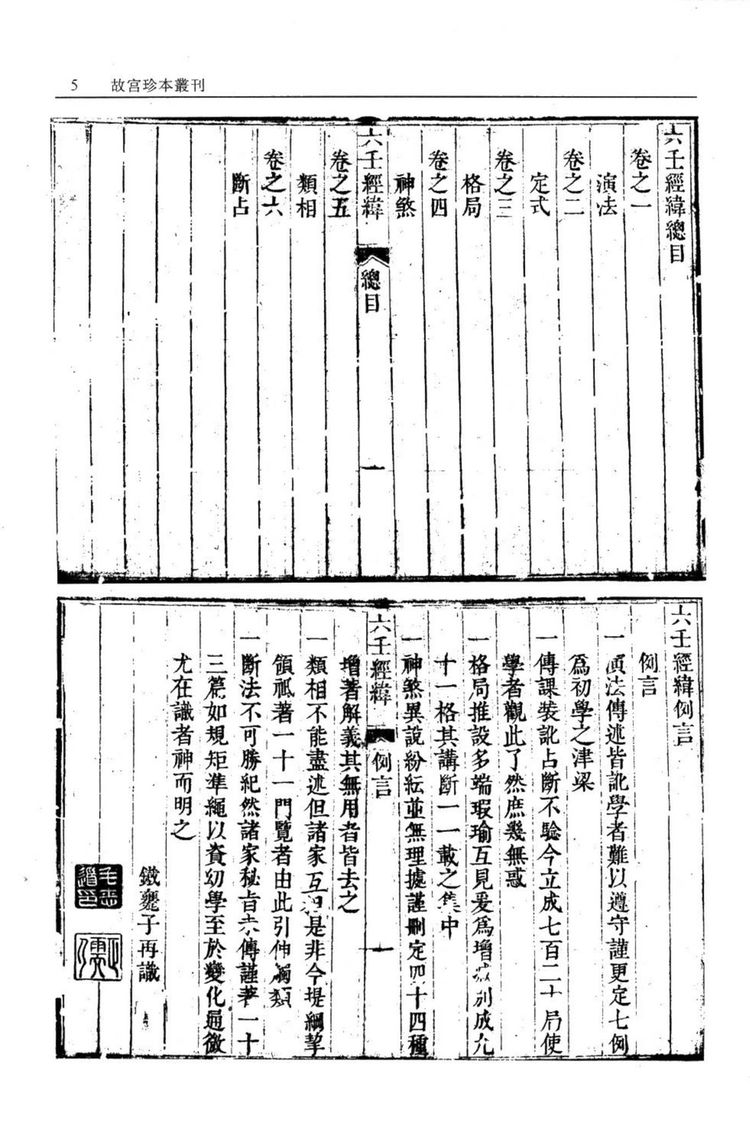 5 故宮珍本叢刊
六壬經緯總目
卷之一
演法
卷之二
定式
卷之三
格局
卷之四
神煞
六壬經緯 總目 一
卷之五
類相
卷之六
斷占
六壬經緯例言
例言
一演法傳述皆訛學者難以遵守謹更定七例
爲初學之津梁
一傳課裝訛占斷不驗今立成七百二十局使
學者觀此了然庶幾無惑
一格局推設多端瑕瑜互見爰爲增 別成九
十一格其講斷一一載之集中
一神煞異說紛紜並無理據謹刪定四十四種
六壬經緯 例言 一
增著解義其無用者皆去之
一類相不能盡述但諸家互 是非今提綱挈
領祗著一十一門覽者由此引伸觸類
一斷法不可勝紀然諸家秘旨未傳謹著一十
三篇如規矩準繩以資幼學至於變化通微
尤在識者神而明之
鐵甕子再識